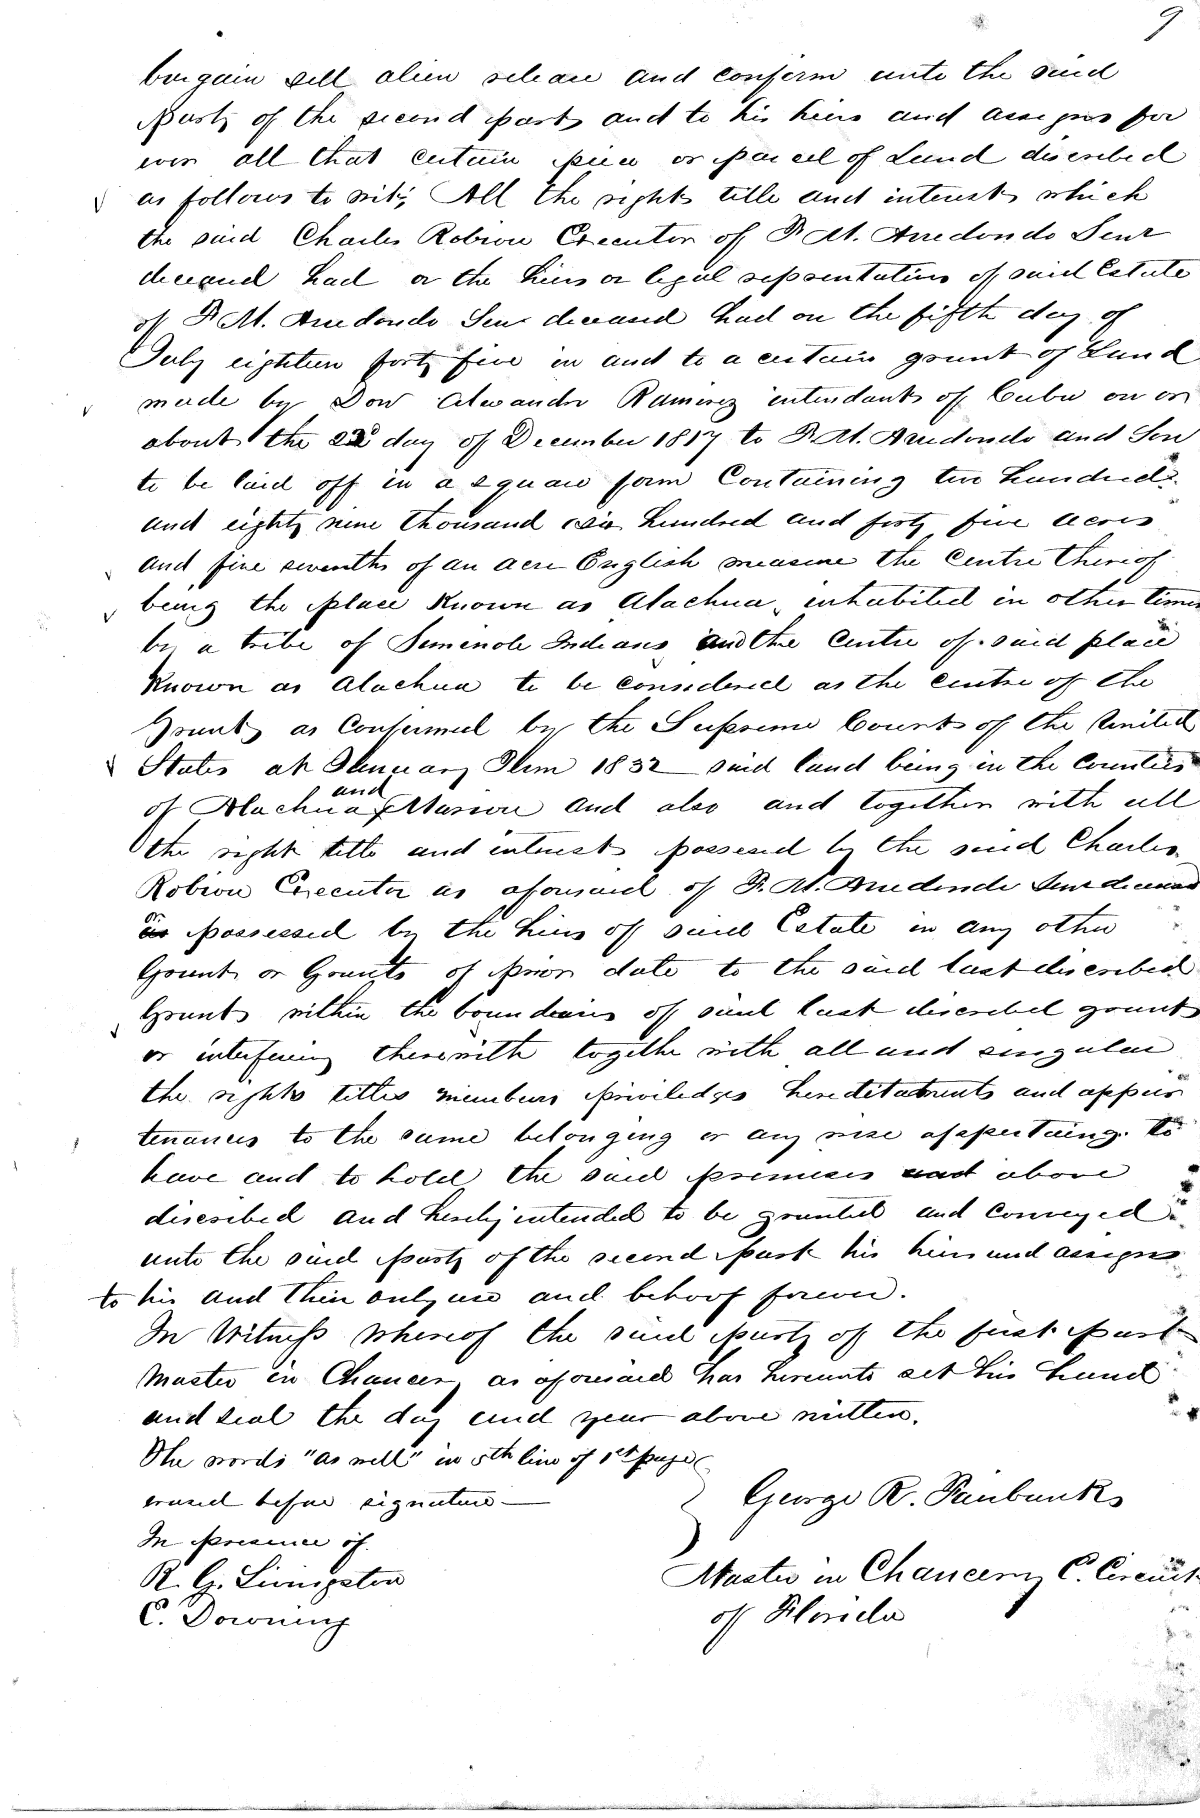 9
bargain sell alien release and confirm unto the said
party of the second part and to his heirs and assigns for
ever all that certain piece or parcel of Land discribed
as follows to wit; All the right title and interest which
the said Charles Robion Executor of F. M. Arredondo Senr
deceased had or the heirs or legal representatives of said Estate
of F. M. Arredondo Senr deceased had on the fifth day of
July eighteen forty five in and to a certain grant of Land
made by Don Alexander Ramirez intendant of Cuba on or
about the 22d day of December 1817 to F. M. Arredondo and Son
to be laid off in a square form Containing two hundred
and eighty nine thousand six hundred and forty five acres
and five sevenths of an acre English measure the Centre thereof
being the place Known as Alachua inhabited in other times
by a tribe of Seminole Indians and the Centre of said place
Known as Alachua to be considered as the centre of the
Grant as Confirmed by the Supreme Court of the United
States at January Term 1832 said land being in the Counties
of Alachua and Marion and also and together with all
the right title and interest possessed by the said Charles
Robion Executor as aforesaid of F. M. Arredondo Senr deceased
or possessed by the heirs of said Estate in any other
Grant or Grants of prior date to the said last discribed
Grant within the boundaries of said last discribed grant
or interfering therewith togethe with all and singular
the rights titles members priviledges hereditatments and appur
tenances to the same belonging or any wise appertaing. to
have and to hold the said premises and above
discribed and hereby intended to be granted and conveyed
unto the said party of the second part his heirs and assigns
to his and their only use and behoof forever.
In Witness Whereof the said party of the first part
Master in Chancery as aforesaid has hereunto set his hand
and seal the day and year above written.
The words "as well" in 5th line of 1st page
erased before signature—
George R. Fairbanks
In presence of
R. G. Livingston
Master in Chancery C. Circuit
C. Downing
of Florida